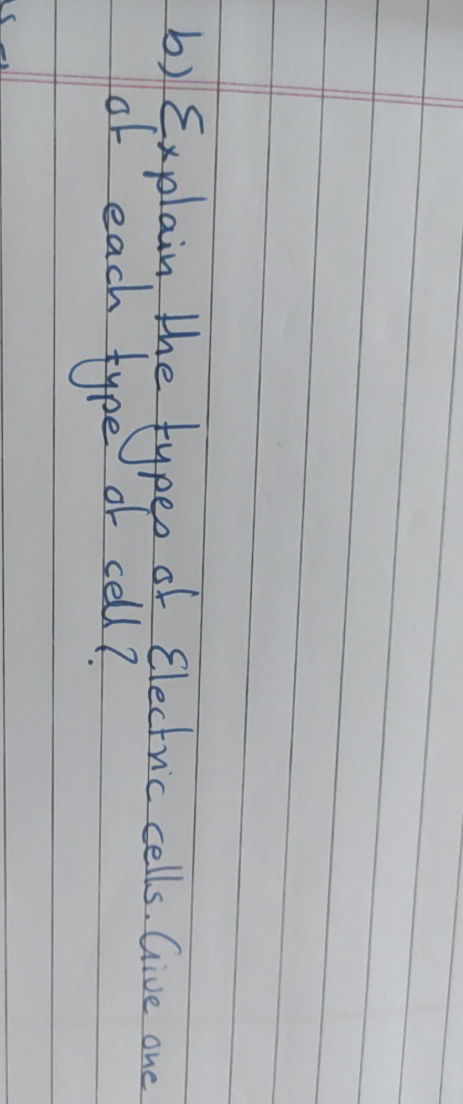 b) Explain the types of Electric cells. Give one
of each type of cell?